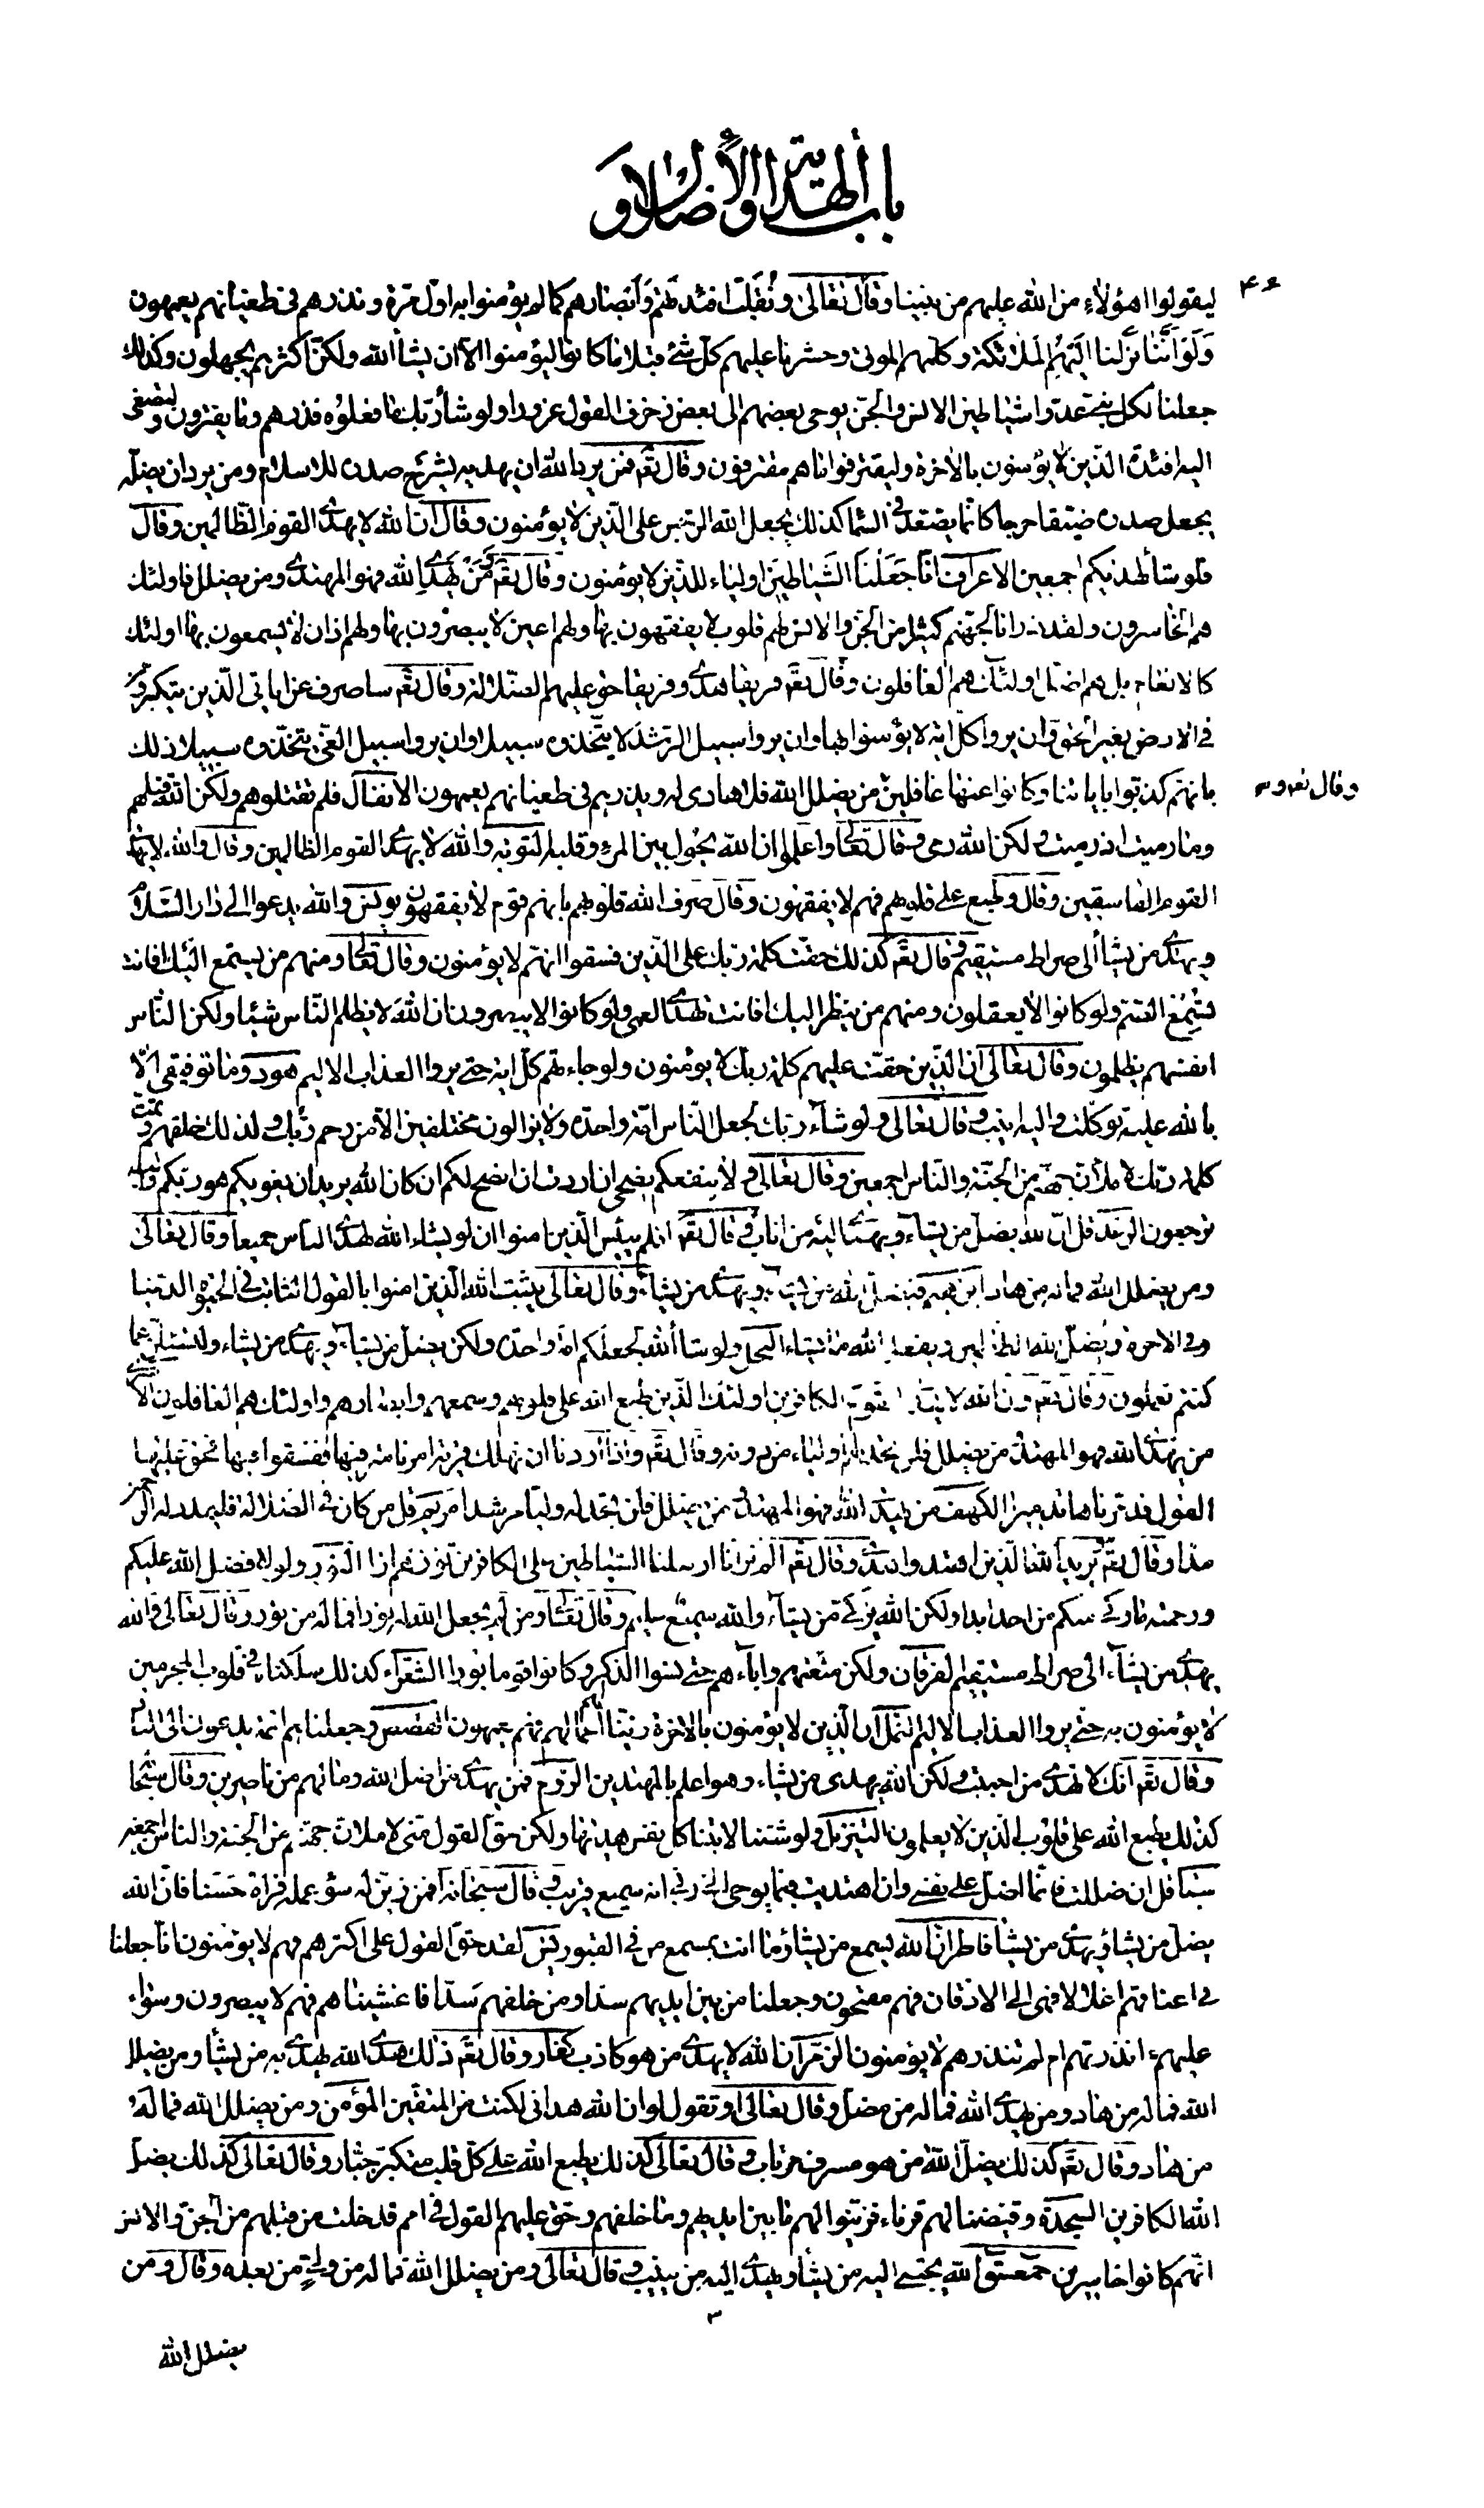 باب الهداية والأضلال و
۴۶
ليقولوا اهؤلاء من الله عليهم من بيننا وقال تعالى ونقلب افئدتهم وابصارهم كما لم يؤمنوا به اول مرة ونذرهم في طغيانهم يعمهون
وَلَو انَّنا نزلنا اليهم الملائكة وكلمهم الموتى وحشرنا عليهم كل شئ قبلا ما كانوا ليؤمنوا الا ان يشأ الله ولكن اكثرهم يجهلون وكذلك
جعلنا لكل نبي عدوا شياطين الانس والجن يوحى بعضهم الى بعض زخرف القول غرورا ولو شاء ربك ما فعلوه فذرهم وما يفترون ولتصغى
اليه افئدة الذين لا يؤمنون بالاخرة وليقترفوا ما هم مقترفون وقال تعَ فمن يرد الله ان يهديه يشرح صدره للاسلام ومن يرد ان يضله
يجعل صدره ضيقا حرجا كانما يصعد في السما كذلك يجعل الله الرجس على الذين لا يؤمنون وقال ان الله لا يهدى القوم الظالمين وقال
فلو شا لهديكم اجمعين الاعراف انا جعلنا الشياطين اولياء للذين لا يؤمنون وقال تعَ ومَن يهدى الله فهو المهتدى ومن يضلل فاولئك
هم الخاسرون ولقد ذرانا لجهنم كثيرا من الجن والانس لهم قلوب لا يفقهون بها ولهم اعين لا يبصرون بها ولهم اذان لا يسمعون بها اولئك
كالانعام بل هم اضل اولئك هم الغافلون وقال تعَ فريقا هدى وفريقا حق عليهم الضلالة وقال تعَ ساصرف عن اياتي الذين يتكبرون
في الارض بغير الحق وان يروا كل اية لا يؤمنوا بها وان يروا سبيل الرشد لا يتخذوه سبيلا وان يروا سبيل الغى يتخذوه سبيلا ذلك
بانهم كذبوا باياتنا وكانوا عنها غافلين من يضلل الله فلا هادى له ويذرهم في طغيانهم يعمهون الانفال فلم تقتلوهم ولكن الله قتلهم
وما رميت اذ رميت ولكن الله رمى وقال تعالى واعلموا ان الله يحول بين المرء وقلبه التوبه والله لا يهدى القوم الظالمين وقال والله لا يهدى
القوم الفاسقين وقال وطبع على قلوبهم فهم لا يفقهون وقال صرف الله قلوبهم بانهم قوم لا يفقهون يونس والله يدعوا الى دار السلام
ويهدى من يشأ الى صراط مستقيم وقال تعَ كذلك حقت كلمة ربك على الذين فسقوا انهم لا يؤمنون وقال تعالى ومنهم من يستمع اليك افانت
تسمع الصم ولو كانوا لا يعقلون ومنهم من ينظر اليك افانت تهدى العمى ولو كانوا لا يبصرون ان الله لا يظلم الناس شيئا ولكن الناس
انفسهم يظلمون وقال تعالى ان الذين حقت عليهم كلمة ربك لا يؤمنون ولو جاءتهم كل اية حتى يروا العذاب الاليم هود وما توفيقى الا
بالله عليه توكلت واليه انيب وقال تعالى ولو شاء ربك لجعل الناس امة واحدة ولا يزالون مختلفين الا من رحم ربك ولذلك خلقهم وتمت
كلمة ربك لاملأن جهنم من الجنة والناس اجمعين وقال تعالى ولا ينفعكم نصحى ان اردت ان انصح لكم ان كان الله يريد ان يغويكم هو ربكم واليه
ترجعون الرعد قل ان الله يضل من يشاء ويهدى اليه من اناب وقال تعَ افلم ييئس الذين امنوا ان لو يشاء الله لهدى الناس جميعا وقال تعالى
ومن يضلل الله فما له من هاد ابرهيم فيضل الله من يشاء ويهدى من يشاء وقال تعالى يثبت الله الذين امنوا بالقول الثابت في الحيوة الدنيا
وفي الاخرة ويضل الله الظالمين ويفعل الله ما يشاء النحل ولو شا الله لجعلكم امة واحدة ولكن يضل من يشاء ويهدى من يشاء ولتسئلن عما
كنتم تعملون وقال تعَ وان الله لا يهدى القوم الكافرين اولئك الذين طبع الله على قلوبهم وسمعهم وابصارهم واولئك هم الغافلون الاسرى
من يهدى الله فهو المهتد ومن يضلل فلن تجد لهم اولياء من دونه وقال تعَ واذا اردنا ان نهلك قرية امرنا مترفيها ففسقوا فيها فحق عليها
القول فدمرناها تدميرا الكهف من يهدى الله فهو المهتدى ومن يضلل فلن تجد له وليا مرشدا مريم قل من كان في الضلالة فليمدد له الرحمن
مدا وقال تعَ يزيد الله الذين اهتدوا هدى وقال تعَ الم تر انا ارسلنا الشياطين على الكافرين تؤزهم ازا النور ولولا فضل الله عليكم
ورحمته ما زكى منكم من احد ابدا ولكن الله يزكى من يشاء والله سميع عليم وقال تعالى ومن لم يجعل الله له نورا فما له من نور وقال تعالى والله
يهدى من يشاء الى صراط مستقيم الفرقان ولكن متعتهم واباءهم حتى نسوا الذكر وكانوا قوما بورا الشعراء كذلك سلكناه في قلوب المجرمين
لا يؤمنون به حتى يروا العذاب الاليم النمل ان الذين لا يؤمنون بالاخرة زينا لهم اعمالهم فهم يعمهون القصص وجعلناهم ائمة يدعون الى النار
وقال تعَ انك لا تهدى من احببت ولكن الله يهدى من يشاء وهو اعلم بالمهتدين الروم فمن يهدى من اضل الله وما لهم من ناصرين وقال سبحانه
كذلك يطبع الله على قلوب الذين لا يعلمون التنزيل ولو شئنا لاتينا كل نفس هديها ولكن حق القول منى لاملان جهنم من الجنة والناس اجمعين
سبا قل ان ضللت فانما اضل على نفسى وان اهتديت فبما يوحى الى ربى انه سميع قريب وقال سبحانه افمن زين له سؤ عمله فراه حسنا فان الله
يضل من يشا ويهدى من يشأ فاطر ان الله يسمع من يشأ وما انت بمسمع من في القبور يس لقد حق القول على اكثرهم فهم لا يؤمنون انا جعلنا
في اعناقهم اغلالا فهى الى الاذقان فهم مقمحون وجعلنا من بين ايديهم سدا ومن خلفهم سدا فاغشيناهم فهم لا يبصرون وسواء
عليهم ءانذرتهم ام لم تنذرهم لا يؤمنون الزمر ان الله لا يهدى من هو كاذب كفار وقال تعَ ذلك هدى الله يهدى به من يشأ ومن يضلل
الله فما له من هاد ومن يهدى الله فما له من مضل وقال تعالى او تقول لو ان الله هدانى لكنت من المتقين المؤمن ومن يضلل الله فما له
من هاد وقال تعَ كذلك يضل الله من هو مسرف مرتاب وقال تعالى كذلك يطبع الله على كل قلب متكبر جبار وقال تعالى كذلك يضل
الله الكافرين السجدة وقيضنا لهم قرناء فزينوا لهم ما بين ايديهم وما خلفهم وحق عليهم القول في امم قد خلت من قبلهم من الجن والانس
انهم كانوا خاسرين حمعسق الله يجتبى اليه من يشأ ويهدى اليه من ينيب وقال تعالى ومن يضلل الله فما له من ولى من بعده وقال ومن
يضلل الله